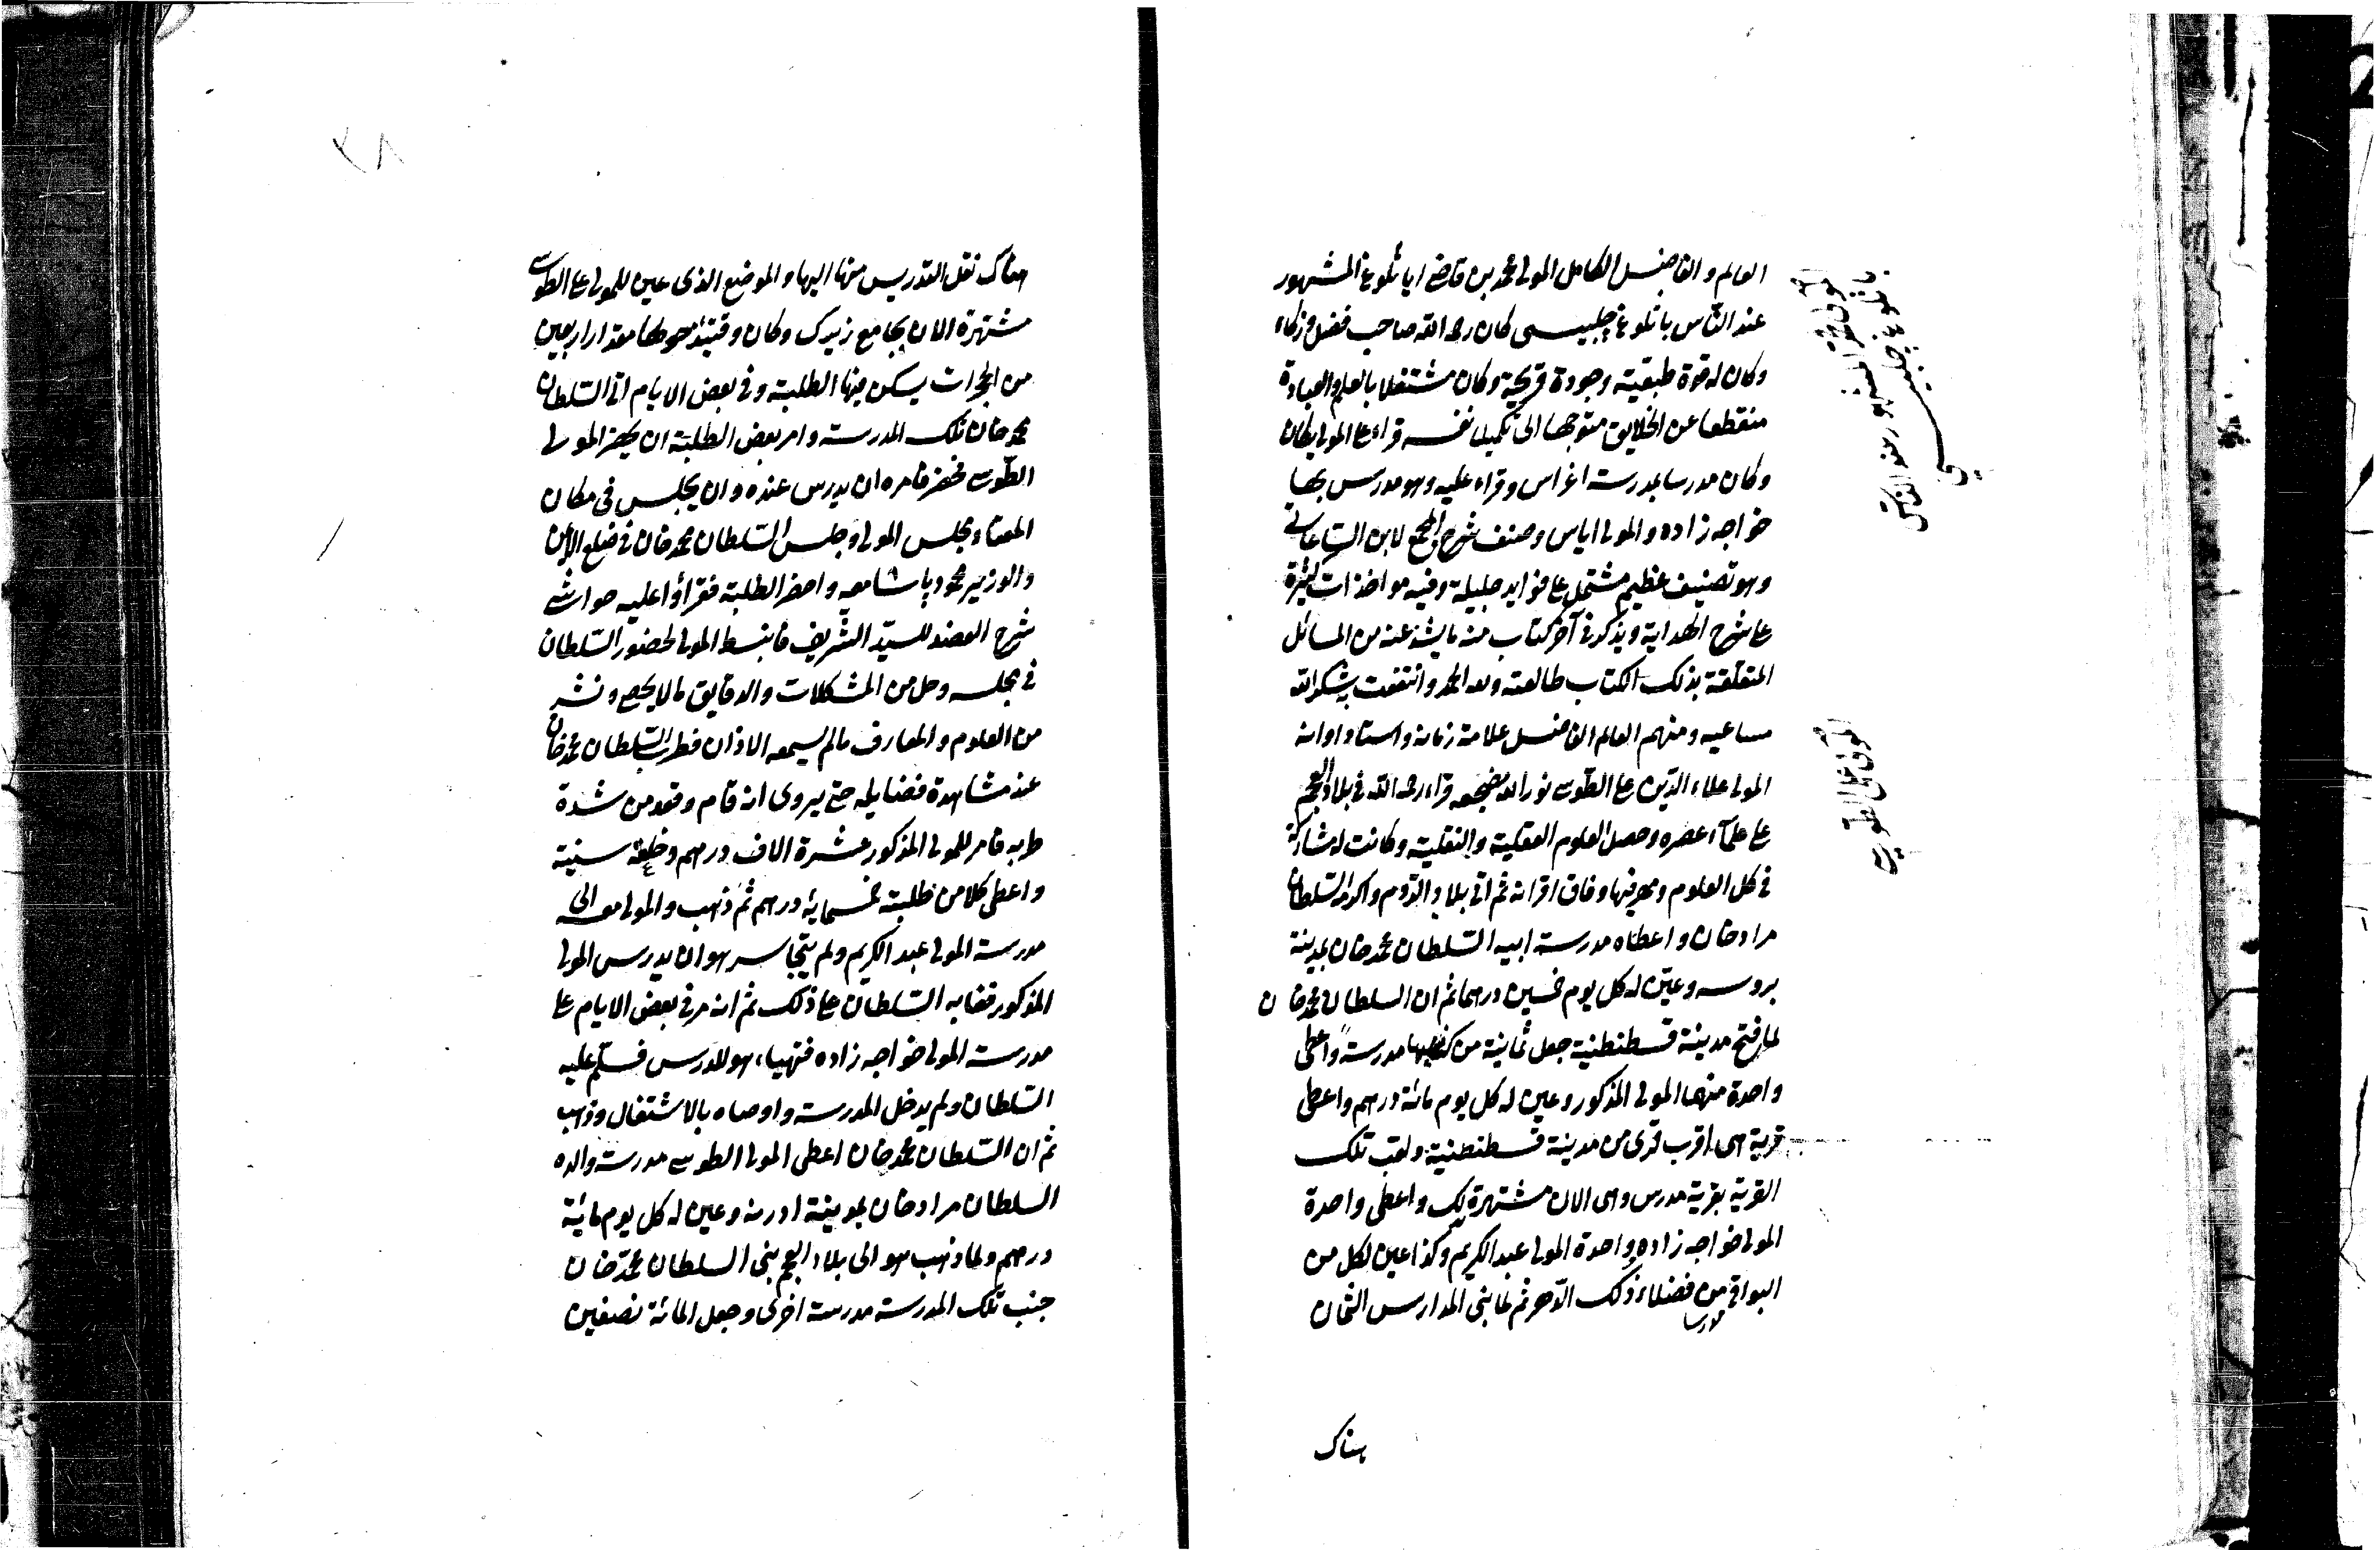 العالم والفاضل الكامل المولى محمد بن قاضى اياثلوغ المشهور
عند الناس باثلوغ چلبيسى كان رحمه الله صاحب فضل وذكاء
وكان له قوة طبيعية وجودة قريحة وكان مشتغلا بالعلم والعبادة
منقطعا عن الخلايق متوجها الى تكميل نفسه قراء على المولى يكان
وكان مدرسا بمدرسة اغراس وقراء عليه وهو مدرس بها
خواجه زاده والمولى اياس وصنف شرح المجمع لابن الساعاتى
وهو تصنيف عظيم مشتمل على فوايد جليلة وفيه مواخذات كثيرة
على شرح الهداية ويذكر فى آخر كتاب منه ما يشذ عنه من المسائل
المتعلقة بذلك الكتاب طالعته ولله الحمد وانتفعت به شكر الله
مساعيه ومنهم العالم الفاضل علامة زمانه واستاد اوانه
المولى علاء الدين على الطوسى نور الله مضجعه قراء رحمه الله فى بلاد العجم
على علماء عصره وحصل العلوم العقلية والنقلية وكانت له مشاركة
فى كل العلوم ومهر فيها وفاق اقرانه ثم اتى بلاد الروم واكرمه السلطان
مراد خان واعطاه مدرسة ابيه السلطان محمد خان بمدينة
بروسه وعين له كل يوم خمسين درهما ثم ان السلطان محمد خان
لما فتح مدينة قسطنطنية جعل ثمانية من كنايسها مدرسة واعطى
واحدة منها المولى المذكور وعين له كل يوم مائة درهم واعطى
قرية هى اقرب قرى من مدينة قسطنطنية ولقب تلك
القرية بقرية مدرس وهى الان مشتهرة بذلك واعطى واحدة
المولى خواجه زاده وواحدة المولى عبد الكريم وكذا عين لكل من
البواقى مدرسا من فضلاء ذلك الدهر ثم لما بنى المدارس الثمان
هناك
المولى محمد المشهور عند الناس
باثلوغ چلبيسى
المولى على الطوسى
هناك نقل التدريس منها اليها والموضع الذى عين للمولى على الطوسى
مشتهرة الان بجامع زيرك وكان وقتئذ حولها مقدار اربعين
من الحجرات يسكن فيها الطلبة وفى بعض الايام اتى السلطان
محمد خان تلك المدرسة وامر بعض الطلبة ان يحضر المولى
الطوسى فحضر فامره ان يدرس عنده وان يجلس فى مكان
المعتاد فجلس المولى وجلس السلطان محمد خان فى ضلع الايمن
والوزير محمود پاشا معه واحضر الطلبة فقرأوا عليه حواشى
شرح العضد للسيد الشريف فانبسط المولى لحضور السلطان
فى مجلسه وحل من المشكلات والدقايق ما لا يحصى ونشر
من العلوم والمعارف ما لم يسمعه الاذان فطرب السلطان محمد خان
عند مشاهدة فضايله حتى يروى انه قام وقعد من شدة
طربه فامر للمولى المذكور عشرة الاف درهم وخلعة سنية
واعطى كلا من طلبته خمسمائه درهم ثم ذهب والمولى معه الى
مدرسة المولى عبد الكريم ولم يتجاسر هو ان يدرس المولى
المذكور فعابه السلطان على ذلك ثم انه مر فى بعض الايام على
مدرسة المولى خواجه زاده فتهياء هو للدرس فسلم عليه
السلطان ولم يدخل المدرسة واوصاه بالاشتغال وذهب
ثم ان السلطان محمد خان اعطى المولى الطوسى مدرسة والده
السلطان مراد خان بمدينة ادرنه وعين له كل يوم مائة
درهم ولما ذهب هو الى بلاد العجم بنى السلطان محمد خان
جنب تلك المدرسة مدرسة اخرى وجعل المائة نصفين